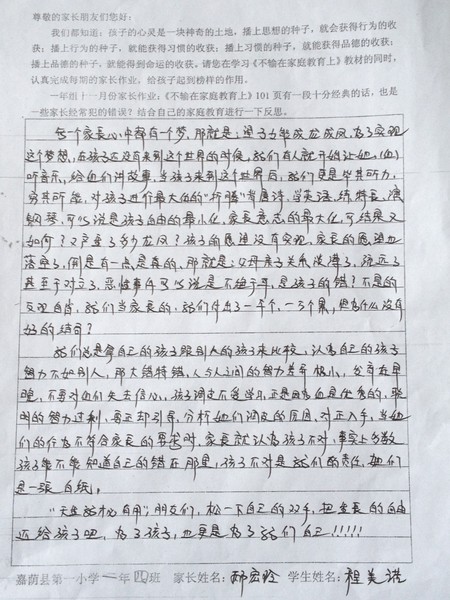 尊敬的家长朋友们您好：
我们都知道：孩子的心灵是一块神奇的土地，播上思想的种子，就会获得行为的收
获；播上行为的种子，就能获得习惯的收获；播上习惯的种子，就能获得品德的收获；
播上品德的种子，就能得到命运的收获。请您在学习《不输在家庭教育上》教材的同时，
认真完成每期的家长作业，给孩子起到榜样的作用。
一年组十一月份家长作业：《不输在家庭教育上》101 页有一段十分经典的话，也是
一些家长经常犯的错误？结合自己的家庭教育进行一下反思。
每个家长心中都有个梦，那就是：望子女能成龙成凤，为了实现
这个梦想，在孩子还没有来到这个世界的时候，我们有人就开始让她，(他)
听音乐，给他们讲故事，当孩子来到这个世界后，我们更是毕其所力，
穷其所能，对孩子进行最大化的“折腾”背唐诗，学英语，练特长，演
钢琴，可以说是孩子自由的最小化，家长意志的最大化，可结果又
如何？又产生了多少龙凤？孩子的愿望没有实现，家长的愿望也
落空了，倒是有一点是真的，那就是：父母亲子关系淡薄了，疏远了
甚至于对立了，
是孩子的错？不是的
反观自省，我们当家长的，我们付出了一千个，一万个累，但为什么没有
好的结果？
我们总是拿自己的孩子跟别人的孩子来比较，认为自己的孩子
智力不如别人，那大错特错，人与人之间的智力差异极小，
不要对他们失去信心，孩子调皮不爱学习，正是因为他是优秀的，聪
明的智力过剩，要正却引导，分析他们调皮的原因，对正入手，当他
们的行为不符合家长的要求时，家长就认为孩子不对，事实上多数
孩子都不能知道自己的错在那里，孩子不对是我们的责任，他们
是一张白纸。
“天生我才必有用”；朋友们，松一下自己的双手，把生长的自由
还给孩子吧，为了孩子，也更是为了我们自己！！！！！
嘉荫县第一小学一年四班 家长姓名：邴宏 学生姓名：程美诺